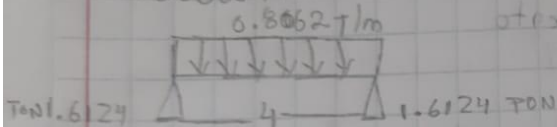 0.8062 T/m
TON 1.6124 4 1.6124 TON